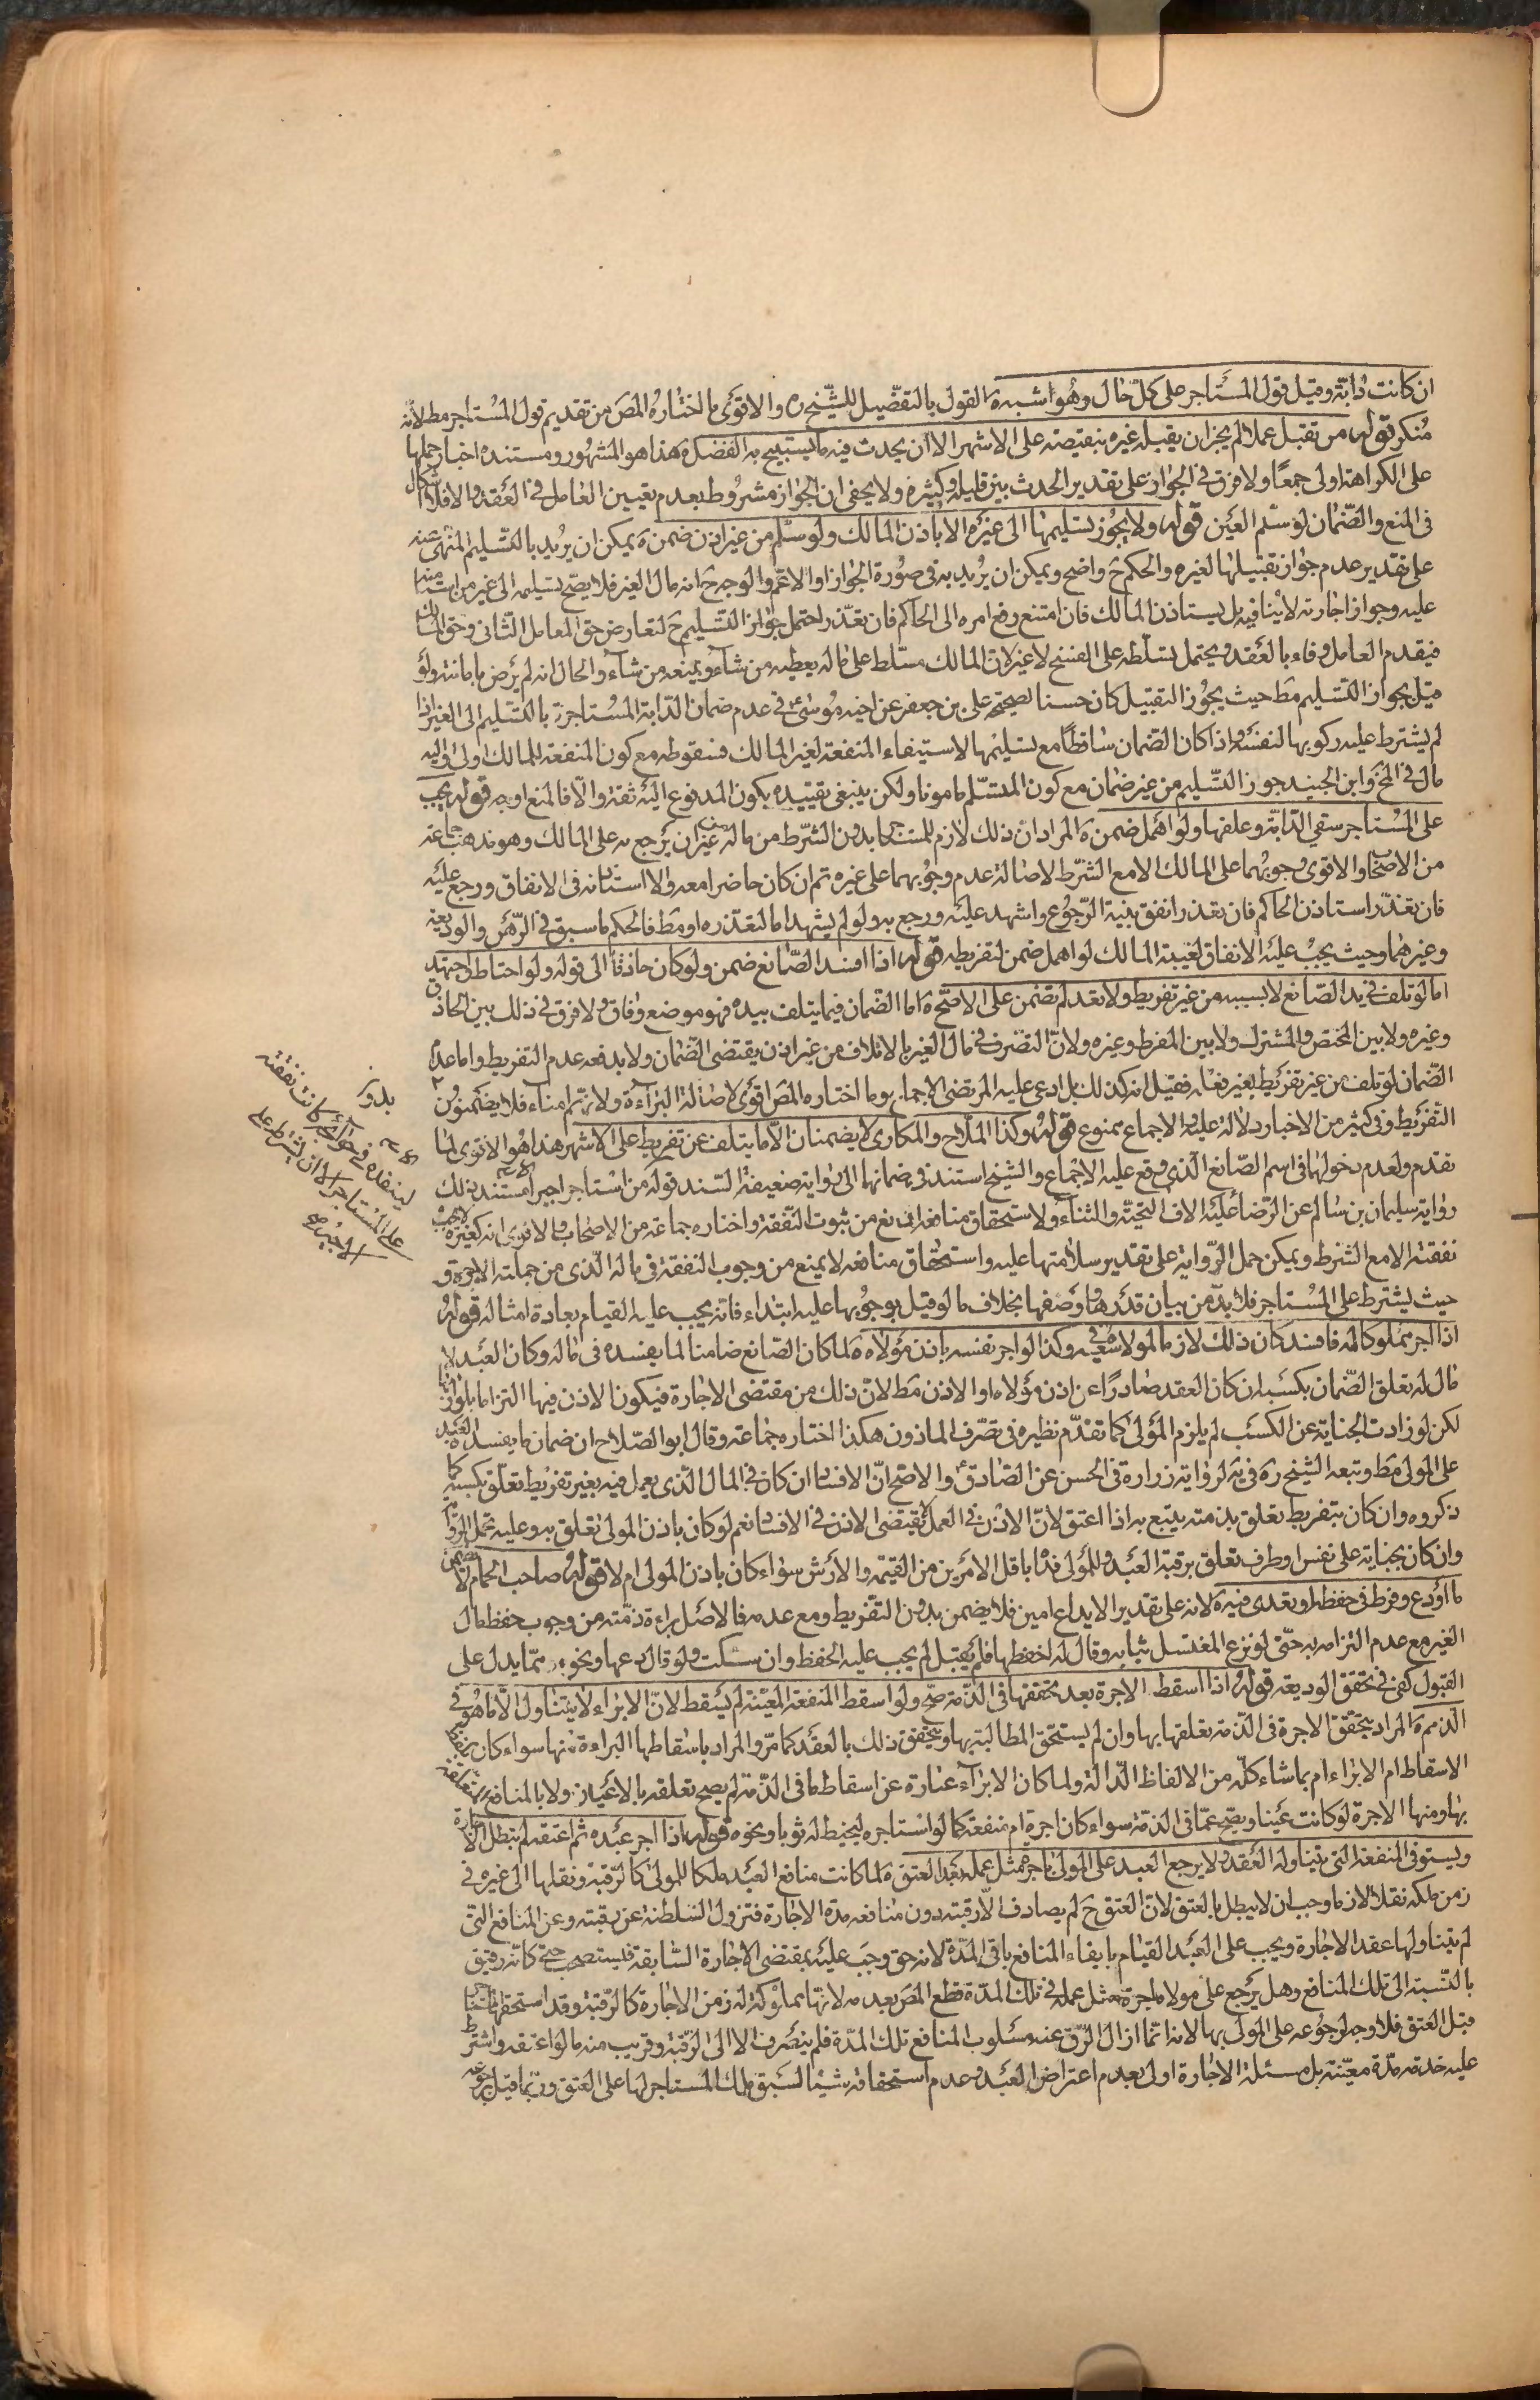 ان كانت دابة وقيل قول المستاجر على كل حال وهو اشبه ة القول بالتفصيل للشيخ ره والاقوى ما اختاره المص من تقديم قول المستاجر مط لانه
منكر قوله من تقبل عملا لم يجز ان يقبله غيره بنقيصته على الاشهر الا ان يحدث فيه ما يستبيح به الفضل ة هذا هو المشهور ومستنده اخبار حملها
على الكراهة اولى جمعا ولا فرق فى الجواز على تقدير الحدث بين قليله وكثيره ولا يخفى ان الجواز مشروط بعدم تعيين العامل فى العقد والا فلا اشكال
فى المنع والضمان لو سلم العين قوله ولا يجوز تسليمها الى غيره الا باذن المالك ولو سلم من غير اذن ضمن ة يمكن ان يريد بالتسليم المنهى عنه
على تقدير عدم جواز تقبيلها لغيره والحكم ح واضح ويمكن ان يريد به فى صورة الجواز او الاعم والوجه ح انه مال الغير فلا يصح تسليمه الى غير من استامنه
عليه وجواز اجارته لا ينافيه بل يستاذن المالك فان امتنع رفع امره الى الحاكم فان تعذر احتمل جواز التسليم ح لتعارض حق العامل الثانى وحق المالك
فيقدم العامل وفاء بالعقد ويحتمل تسلطه على الفسخ لا غير لان المالك مسلط على ماله يعطيه من شاء ويمنعه من شاء والحال انه لم يرض بامانته ولو
قيل بجواز التسليم مط حيث يجوز التقبيل كان حسنا لصحيحة على بن جعفر عن اخيه موسى ع فى عدم ضمان الدابة المستاجرة بالتسليم الى الغير اذا
لم يشترط عليه ركوبها لنفسه واذا كان الضمان ساقطا مع تسليمها لاستيفاء المنفعة لغير المالك فسقوطه مع كون المنفعة للمالك اولى واليه
مال فى المخ وابن الجنيد جوز التسليم من غير ضمان مع كون المتسلم مامونا ولكن ينبغى تقييده بكون المدفوع اليه ثقة والا فالمنع اوجه قوله يجب
على المستاجر سقى الدابة وعلفها ولو اهمل ضمن ة المراد ان ذلك لازم للمستاجر بدون الشرط من ماله من غير ان يرجع به على المالك وهو مذهب جماعة
من الاصحاب والاقوى وجوبهما على المالك الا مع الشرط لاصالة عدم وجوبهما على غيره ثم ان كان حاضرا معه والا استاذنه فى الانفاق ورجع عليه
فان تعذر استاذن الحاكم فان تعذر انفق بنية الرجوع واشهد عليه ورجع به ولو لم يشهد اما لتعذره او مط فالحكم ما سبق فى الرهن والوديعة
وغيرهما وحيث يجب عليه الانفاق لغيبة المالك لو اهمل ضمن لتفريطه قوله اذا افسد الصانع ضمن ولو كان حاذقا الى قوله ولو احتاط واجتهد
اما لو تلف فى يد الصانع لا بسببه من غير تفريط ولا تعد لم يضمن على الاصح ة اما الضمان فيما يتلف بيده فهو موضع وفاق ولا فرق فى ذلك بين الحاذق
وغيره ولا بين المختص والمشترك ولا بين المفرط وغيره ولان التصرف فى مال الغير بالاتلاف من غير اذن يقتضى الضمان ولا يدفعه عدم التفريط واما عدم
الضمان لو تلف من غير تفريط بغير فعله فقيل انه كذلك بل ادعى عليه المرتضى الاجماع وما اختاره المص اقوى لاصالة البراءة ولانهم امناء فلا يضمنون
التفريط وفى كثير من الاخبار دلالة عليه والاجماع ممنوع قوله وكذا الملاح والمكارى لا يضمنان الا ما يتلف عن تفريط على الاشهر هذا هو الاقوى لما
تقدم ولعدم دخولهما فى اسم الصانع الذى وقع عليه الاجماع والشيخ استند فى ضمانها الى رواية ضعيفة السند قوله من استاجر اجيرا مستند ذلك
رواية سليمان بن سالم عن الرضا عليه الاف التحية والثناء ولاستحقاق منافعه المانع من ثبوت النفقة واختاره جماعة من الاصحاب والاقوى انه كغيره لا يجب
نفقته الا مع الشرط ويمكن حمل الرواية على تقدير سلامتها عليه واستحقاق منافعه لا يمنع من وجوب النفقة فى ماله الذى من جملته الاجرة و
حيث يشترط على المستاجر فلا بد من بيان قدرها ووصفها بخلاف ما لو قيل بوجوبها عليه ابتداء فانه يجب عليه القيام بعادة امثاله قوله
اذا اجر مملوكا له فافسد كان ذلك لازما لمولاه فى سعيه وكذا لو اجر نفسه باذن مولاه ة لما كان الصانع ضامنا لما يفسده فى ماله وكان العبد لا
مال له تعلق الضمان بكسبه ان كان العقد صادرا عن اذن مولاه او الاذن مط لان ذلك من مقتضى الاجارة فيكون الاذن فيها التزاما بلوازمها
لكن لو زادت الجناية عن الكسب لم يلزم المولى كما تقدم نظيره فى تصرف الماذون هكذا اختاره جماعة وقال ابو الصلاح ان ضمان ما يفسده العبد
على المولى مط وتبعه الشيخ ره فى ية لرواية زرارة فى الحسن عن الصادق ع والاصح ان الافساد ان كان فى المال الذى يعمل فيه بغير تفريط تعلق بكسبه كما
ذكروه وان كان بتفريط تعلق بذمته يتبع به اذا اعتق لان الاذن فى العمل لا يقتضى الاذن فى الافساد نعم لو كان باذن المولى تعلق به وعليه تحمل الرواية
وان كان بجنايته على نفس او طرف تعلق برقبة العبد وللمولى فداه باقل الامرين من القيمة والارش سواء كان باذن المولى ام لا قوله صاحب الحمام لا يضمن
ما اودع وفرط فى حفظه او تعدى فيه ة لانه على تقدير الايداع امين فلا يضمن بدون التفريط ومع عدمه فالاصل براءة ذمته من وجوب حفظ مال
الغير مع عدم التزامه به حتى لو نزع المغتسل ثيابه وقال له احفظها فلم يقبل لم يجب عليه الحفظ وان سكت ولو قال دعها ونحوه مما يدل على
القبول كفى فى تحقق الوديعة قوله اذا اسقط الاجرة بعد تحققها فى الذمة صح ولو اسقط المنفعة المعينة لم يسقط لان الابراء لا يتناول الا ما هو فى
الذمم ة المراد بتحقق الاجرة فى الذمة تعلقها بها وان لم يستحق المطالبة بها ويتحقق ذلك بالعقد كما مر والمراد باسقاطها البراءة منها سواء كان بلفظ
الاسقاط ام الابراء ام بما شاء كله من الالفاظ الدالة ولما كان الابراء عبارة عن اسقاط ما فى الذمة لم يصح تعلقه بالاعيان ولا بالمنافع المتعلقة
بها ومنها الاجرة لو كانت عينا ويصح عما فى الذمة سواء كان اجرة ام منفعة كما لو استاجره ليخيط له ثوبا ونحوه قوله اذا اجر عبده ثم اعتقه لم تبطل الاجارة
ويستوفى المنفعة التى يتناوله العقد ولا يرجع العبد على المولى باجرة مثل عمله بعد العتق ة لما كانت منافع العبد ملكا للمولى كالرقبة ونقلها الى غيره فى
زمن ملكه نقلا لازما وجب ان لا يبطل بالعتق لان العتق ح لم يصادف الا رقبته دون منافعه مدة الاجارة فتزول السلطنة عن رقبته وعن المنافع التى
لم يتناولها عقد الاجارة ويجب على العبد القيام بايفاء المنافع باقى المدة لانه حق وجب عليه بمقتضى الاجارة السابقة فليستصحب حتى كانه رقيق
بالنسبة الى تلك المنافع وهل يرجع على مولاه باجرة مثل عمله فى تلك المدة قطع المص بعدمه لانها مملوكة له زمن الاجارة كالرقبة وقد استحقها المستاجر
قبل العتق فلا وجه لرجوعه على المولى بها لانه انما ازال الرق عنه مسلوب المنافع تلك المدة فلم يتصرف الا الى الرقبة وقريب منه ما لو اعتقه واشترط
عليه خدمة مدة معينة بل مسئلة الاجارة اولى بعدم اعتراض العبد وعدم استحقاقه شيئا لسبق ملك المستاجر لها على العتق وربما قيل برجوعه
بدون
لينفذه فى حوائجه كانت نفقته
على المستاجر الا ان يشترط على
الاجير صح